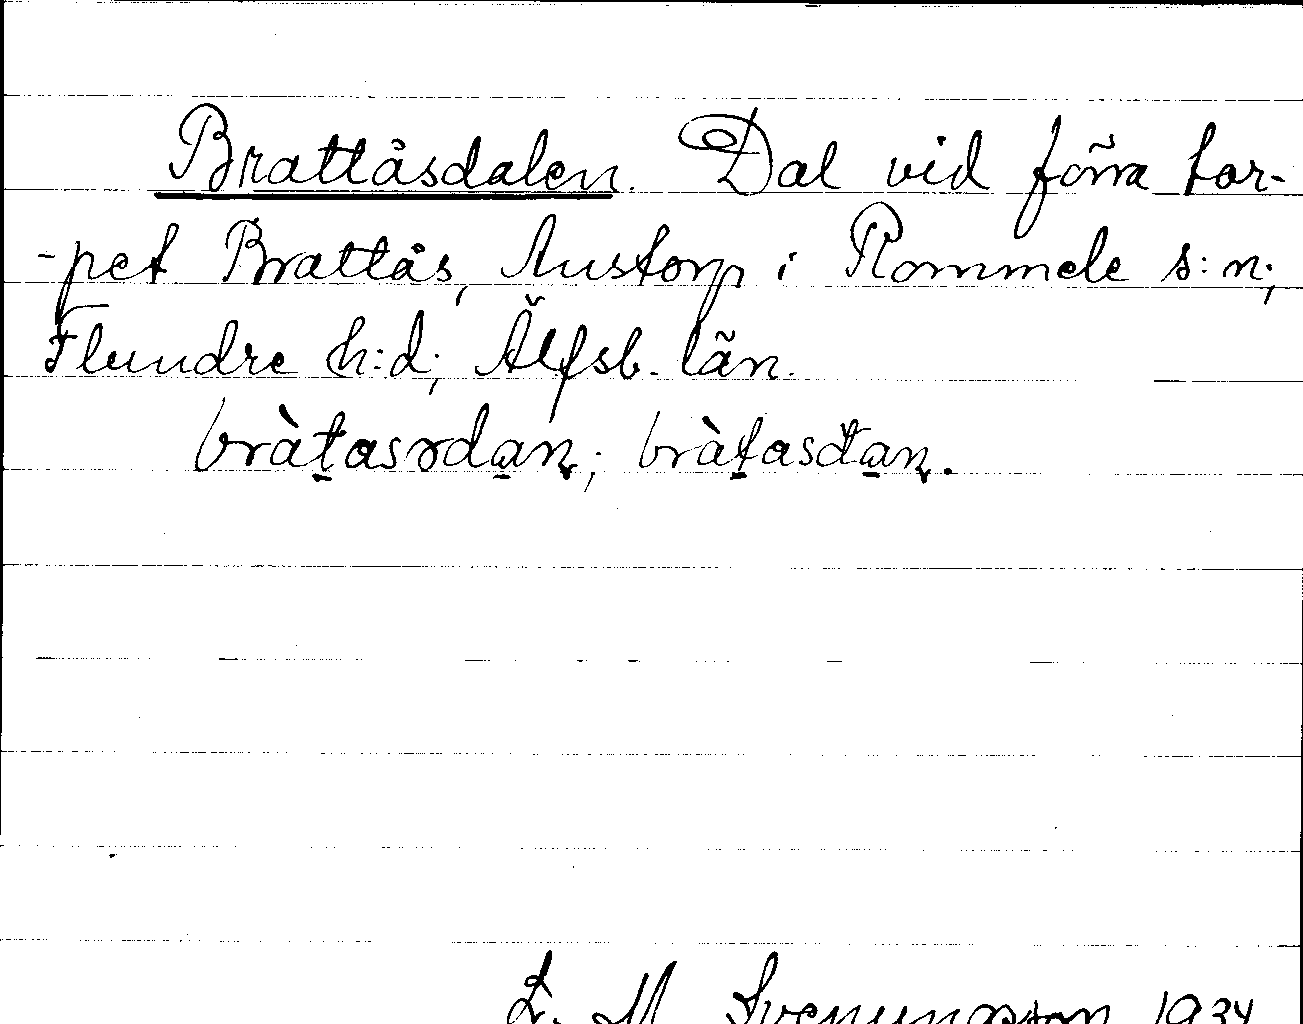 Brattåsdalen. Dal vid förra tor-
-pet Brattås, Austorp i Rommele s:n;
Flundre h:d; Älfsb. län.
bràt̲asɤda̲n; bràt̲asda̲n.
L. M Svenungsson 1934